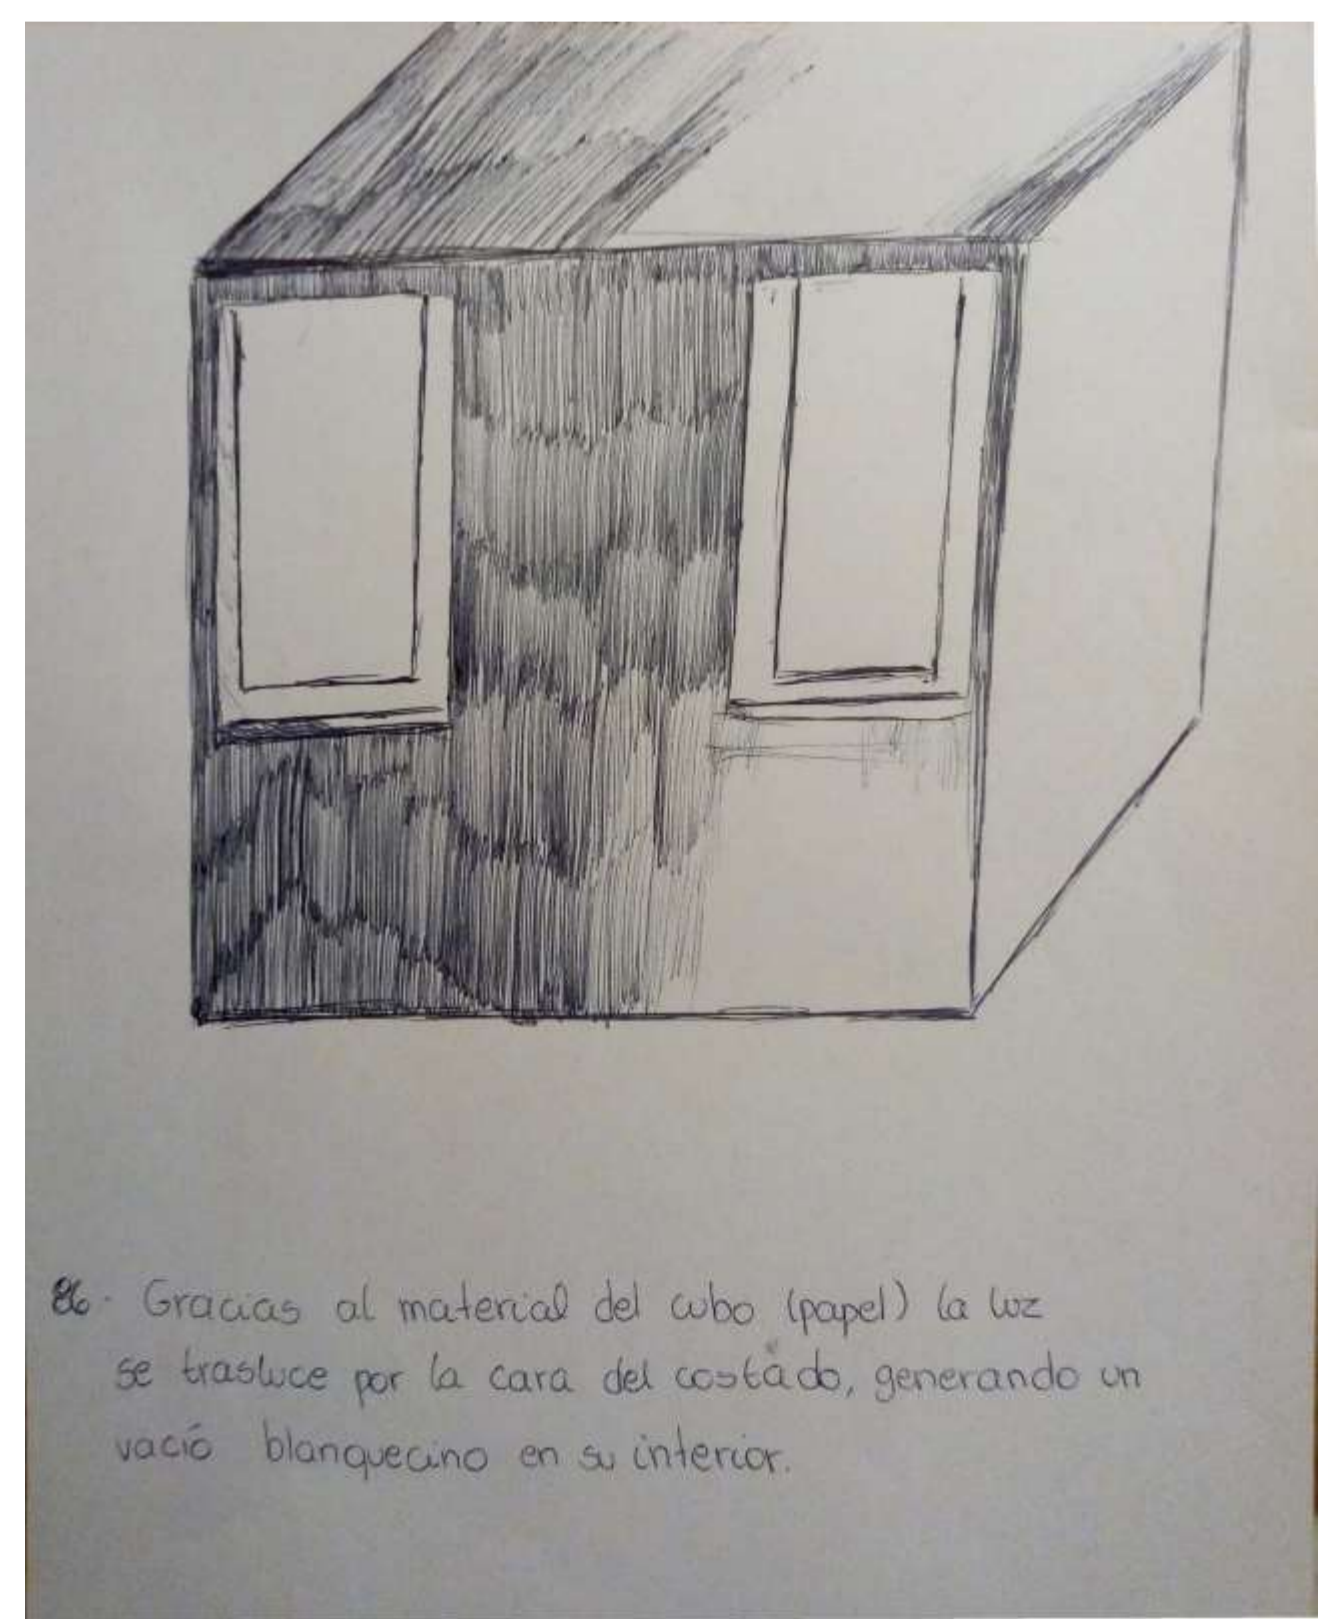 86. Gracias al material del cubo (papel) la luz
se trasluce por la cara del costado, generando un
vació blanquecino en su interior.